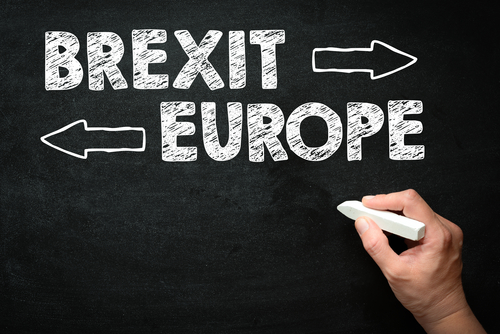 BREXIT
EUROPE